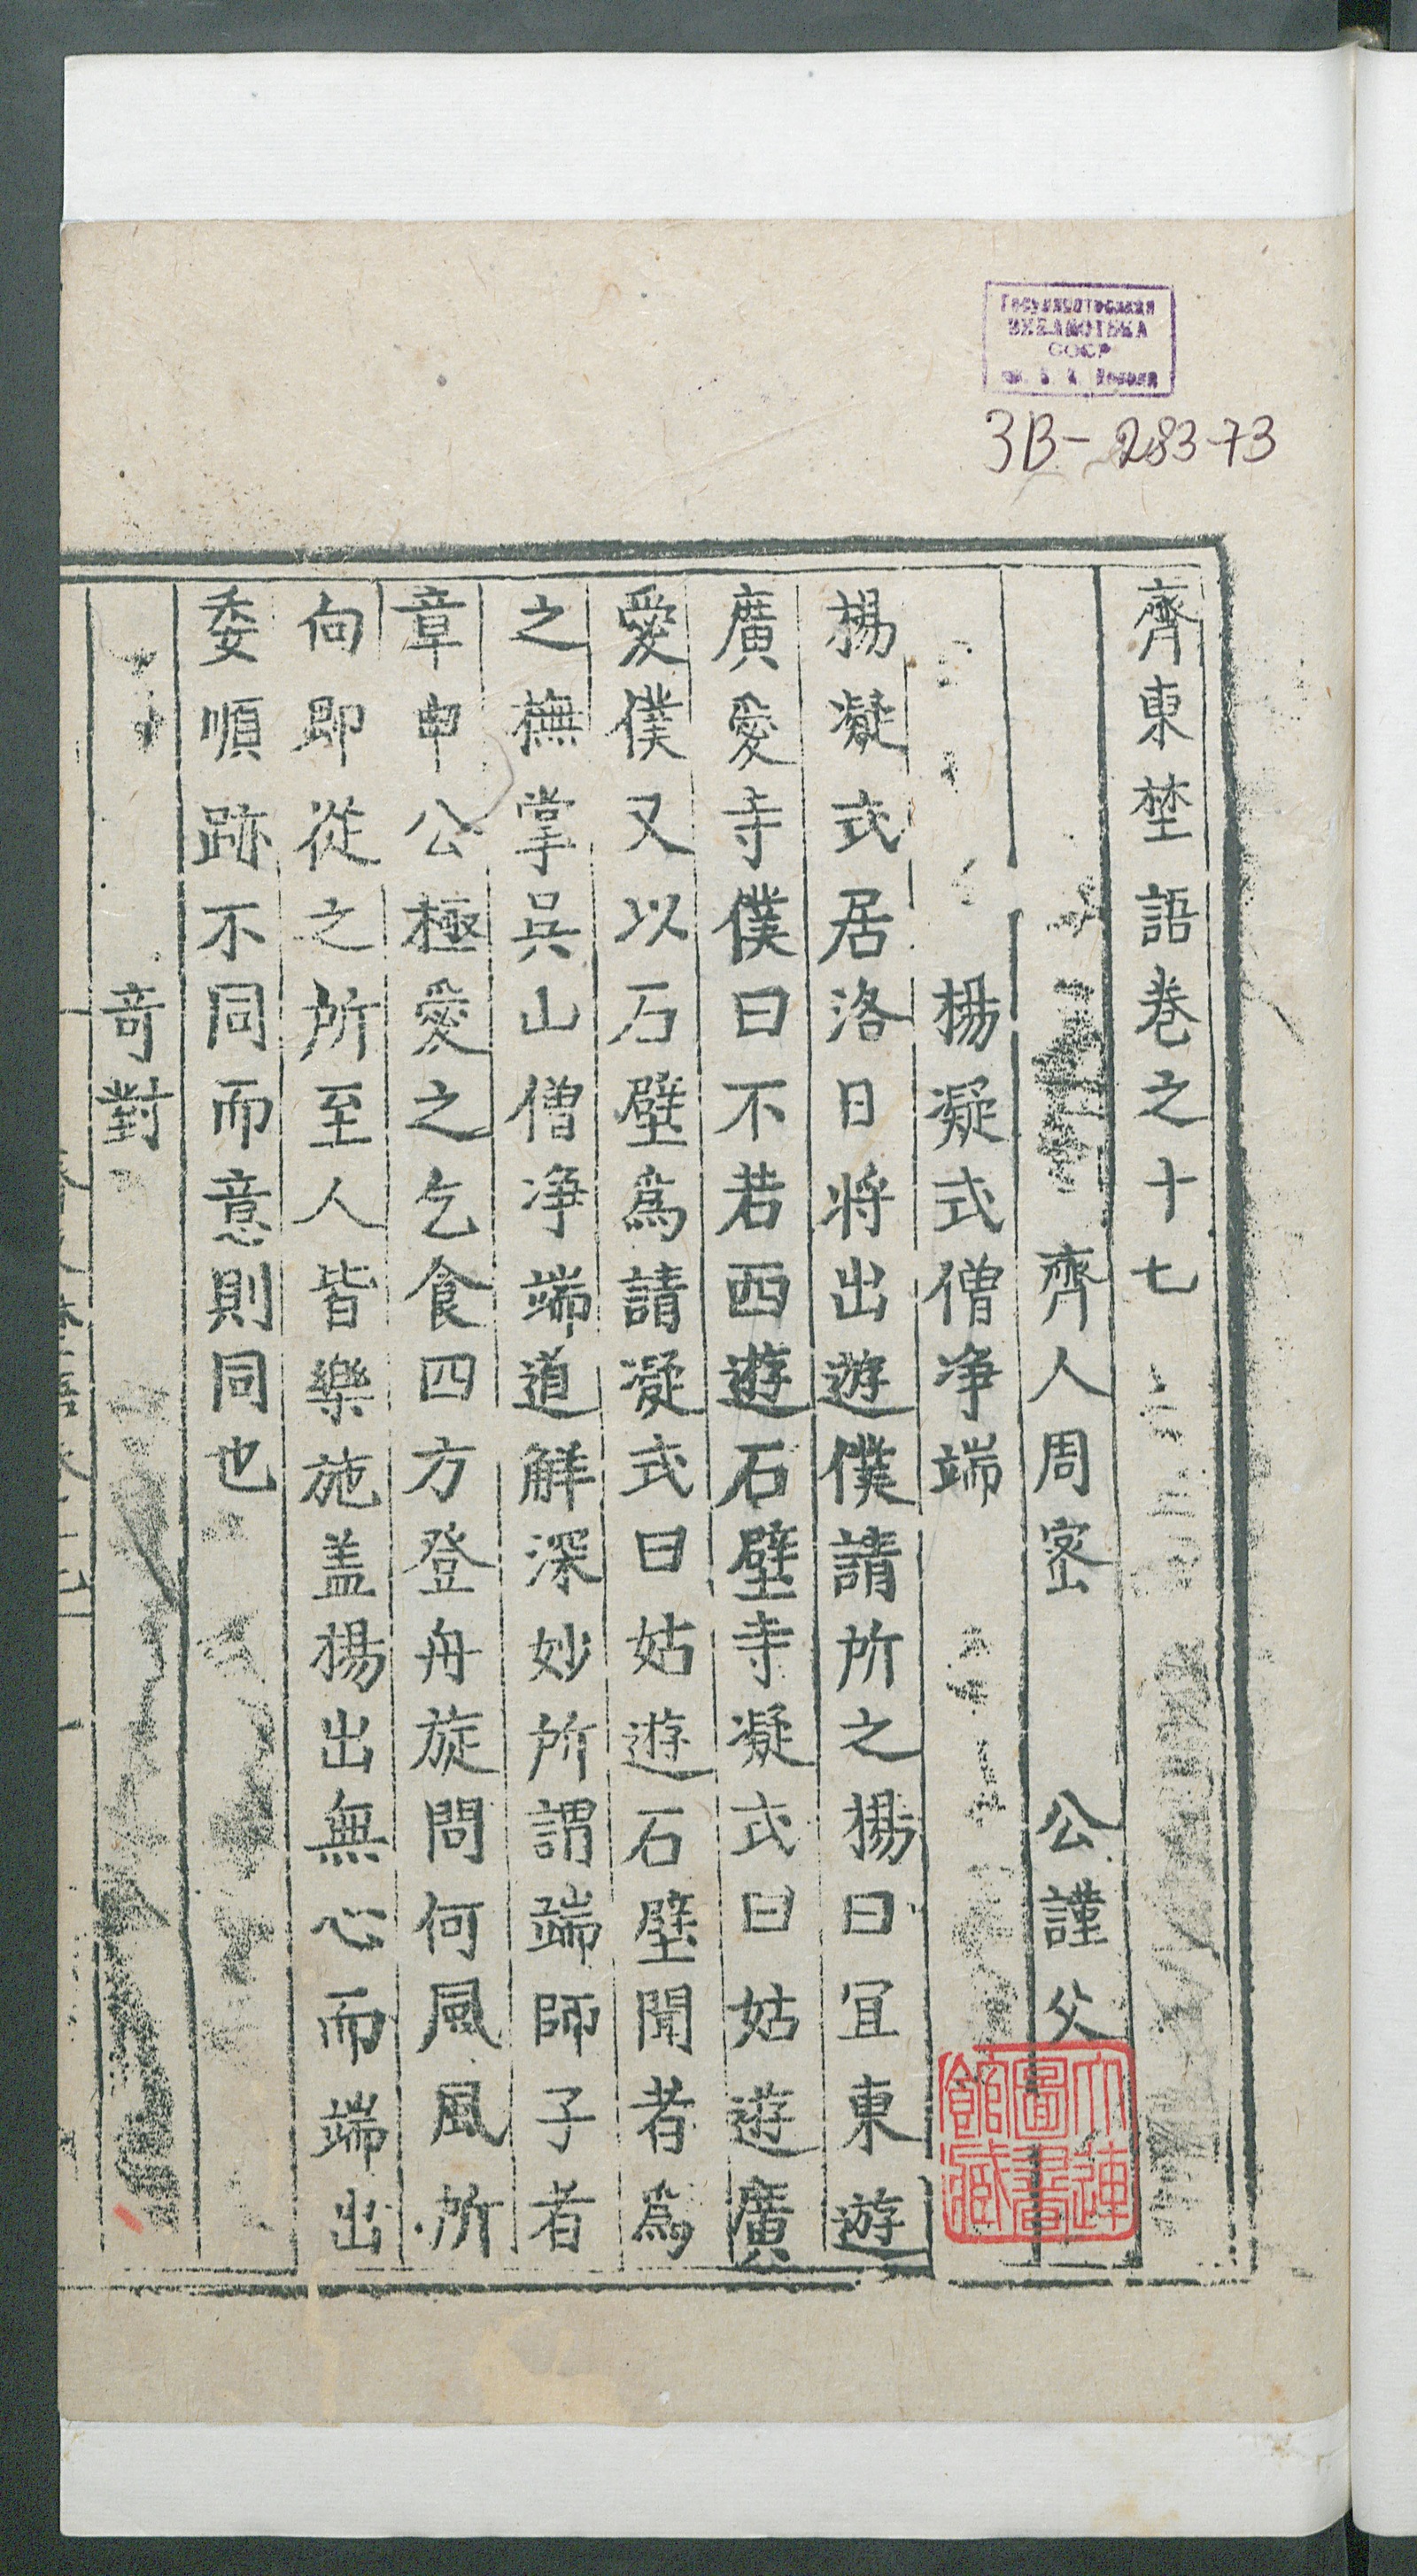 Государственная
БИБЛИОТЕКА
СССР
им. В. И. Ленина
3В-28373
齊東埜語卷之十七
齊人周密 公謹父
楊凝式僧净端
楊凝式居洛日將出遊僕請所之楊曰宜東遊
廣愛寺僕曰不若西遊石壁寺凝式曰姑遊廣
愛僕又以石壁爲請凝式曰姑遊石壁聞者爲
之撫掌吳山僧净端道解深妙所謂端師子者
章申公極愛之乞食四方登舟旋問何風風所
向即從之所至人皆樂施盖楊出無心而端出
委順跡不同而意則同也
奇對
大連
圖書
館藏